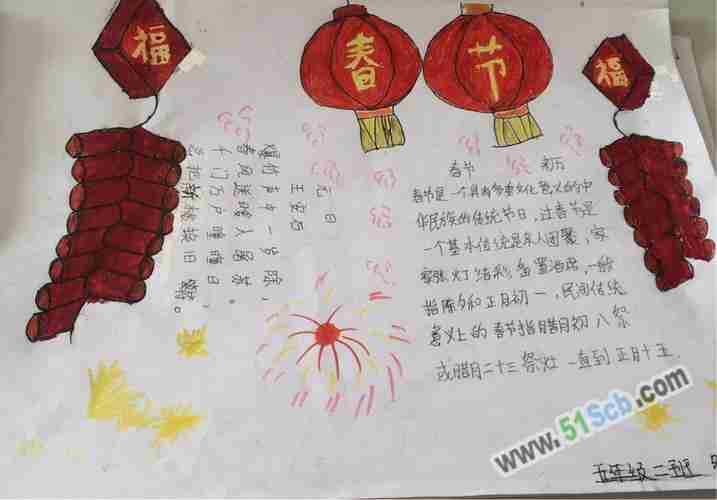 福
春
节
福
元日
王安石
爆竹声中一岁除，
春风送暖入屠苏。
千门万户曈曈日，
总把新桃换旧符。
春节
春节是一个具有多重文化意义的中
华民族的传统节日，过春节是
一个基水传统是家人团聚，家
家张灯结彩，备置酒席，一般
指除夕和正月初一，民间传统
意义上的春节指腊月初八祭
或腊月二十三祭灶一直到正月十五
www.51Scb.com
五年级二班